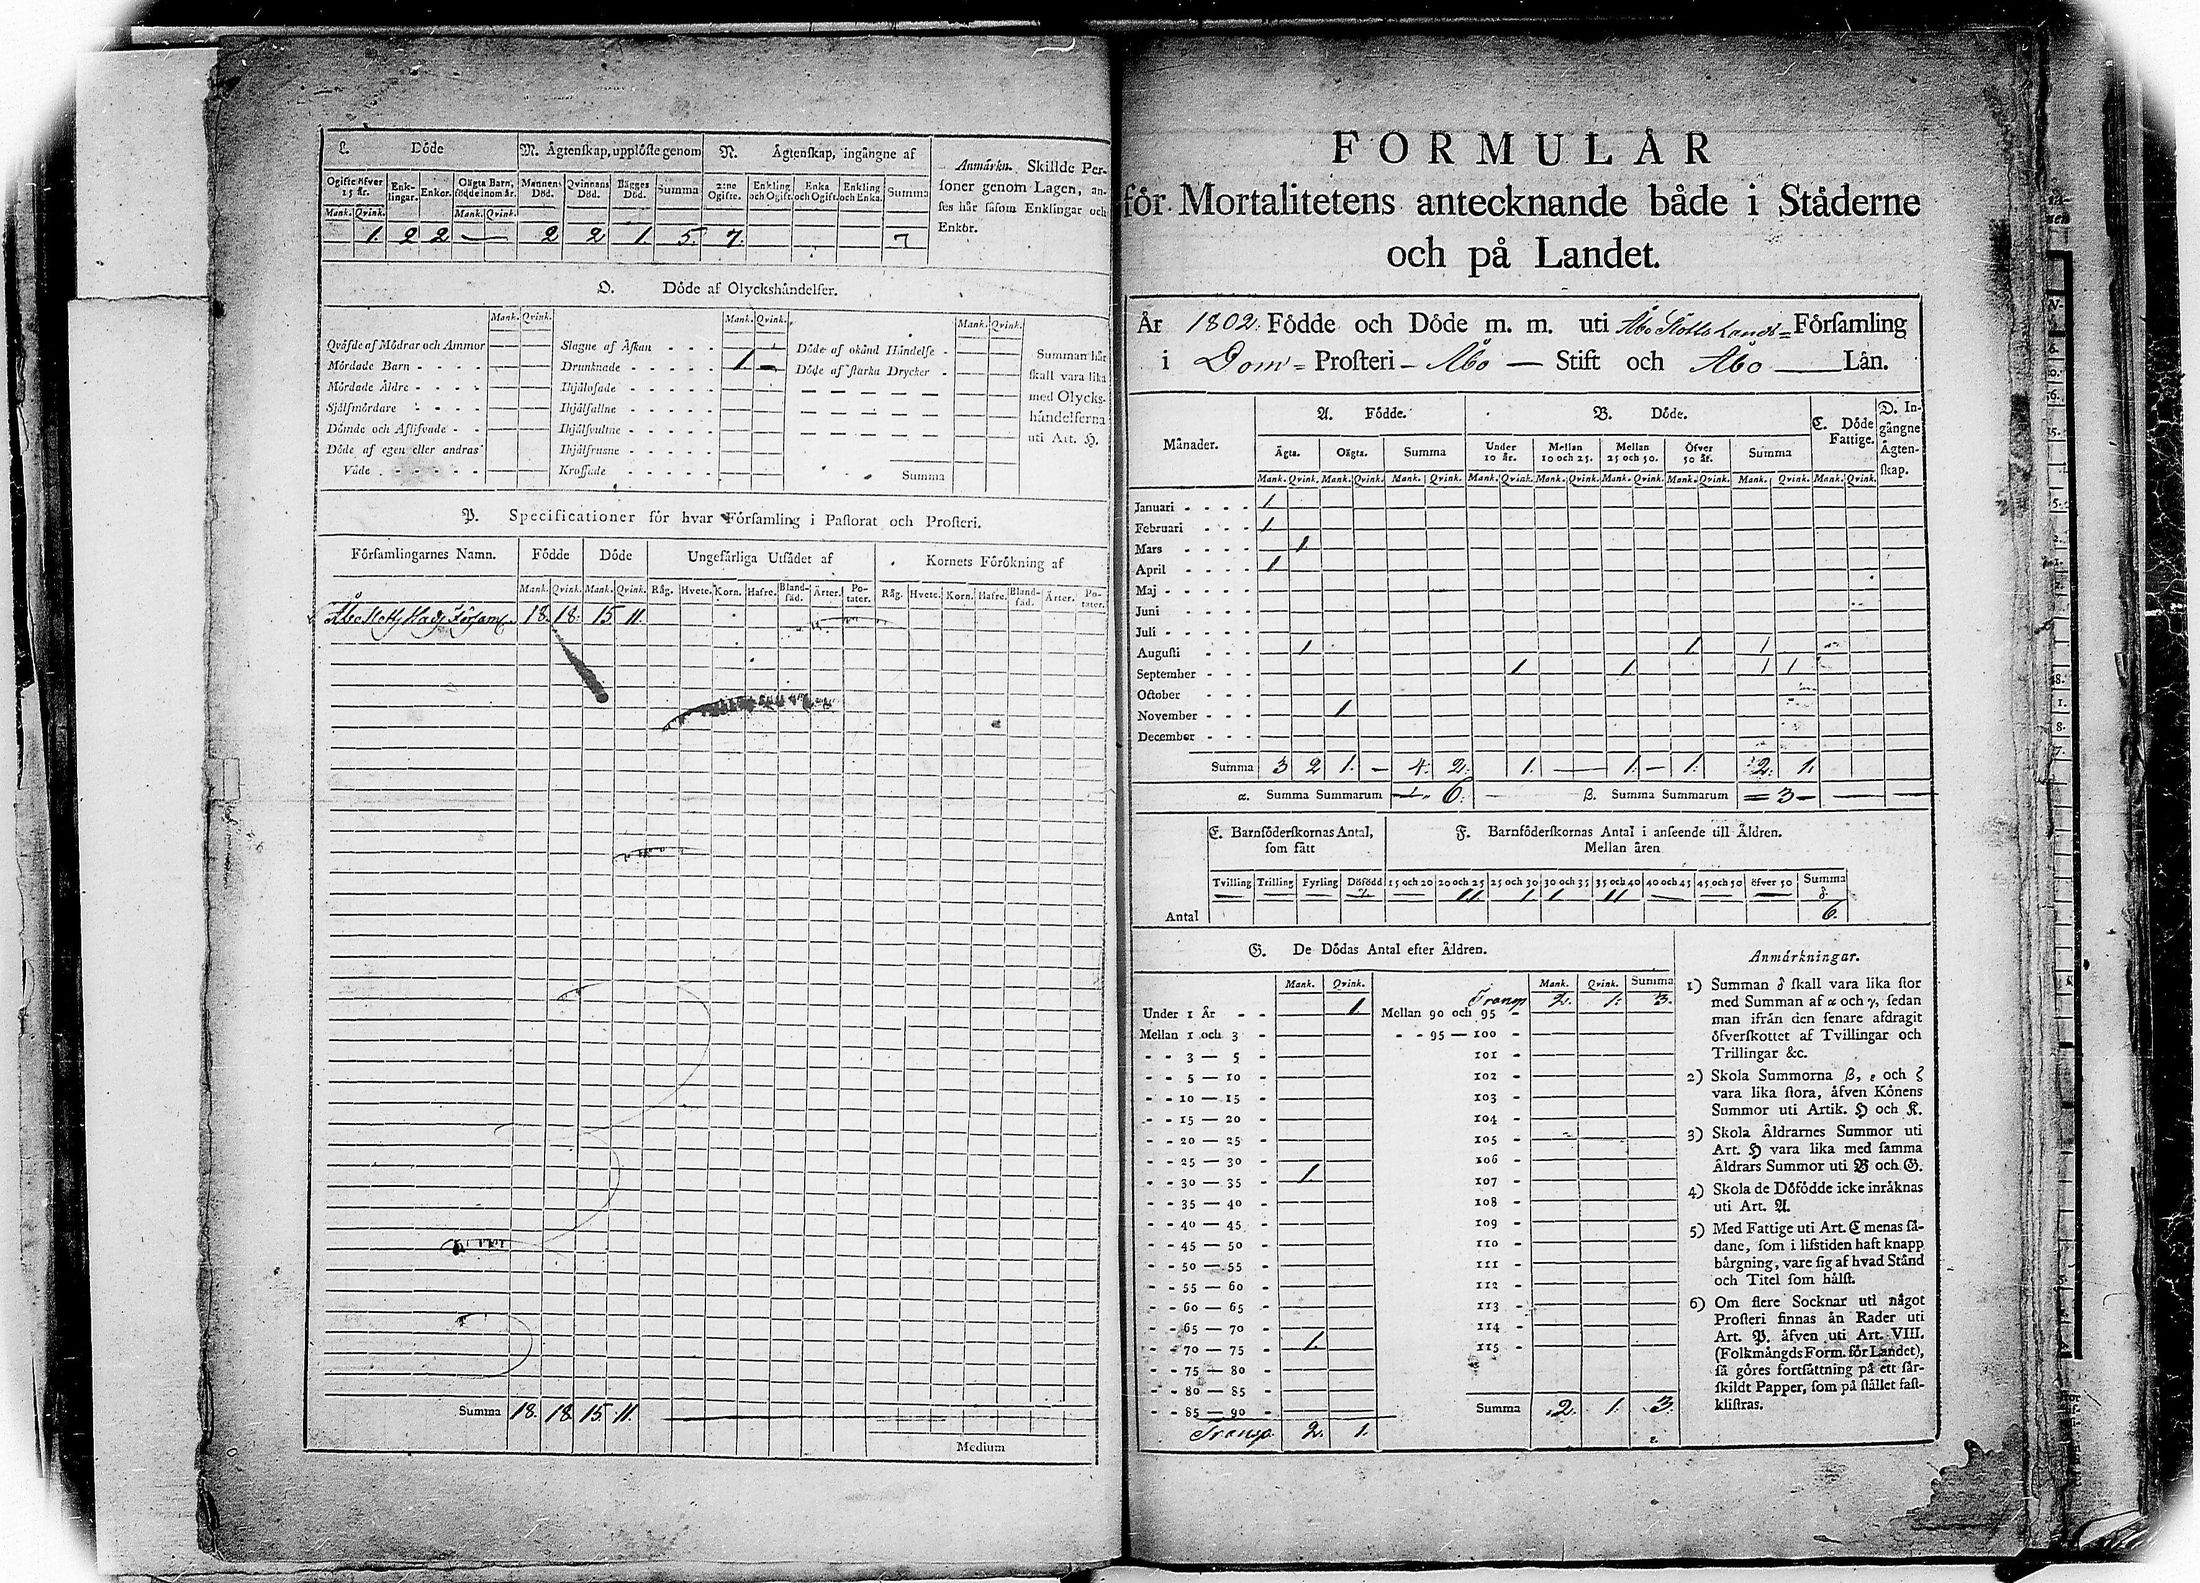 L. Döde
M. Ägtenskap, upplöste genom
N. Ägtenskap, ingångne af
Anmärkn. Skillde Per-
soner genom Lagen, an-
ses här såsom Enklingar och
Enkor.
Ogifte öfver 15 år. Enk-lingar. Enkor. Oägta Barn, födde inom år. Mannens Död. Qvinnans Död. Bägges Död. Summa 2:ne Ogifte. Enkling och Ogift. Enka och Ogift. Enkling och Enka. Summa
Mank. Qvink. Mank. Qvink.
1. 2 2 — 2 2 1. 5. 7. 7
O. Döde af Olyckshändelser.
Mank. Qvink. Mank. Qvink. Mank. Qvink.
Qväfde af Mödrar och Ammor
Mördade Barn - - - -
Mördade Äldre - - - -
Sjelfmördare - - - -
Dömde och Aflifvade - -
Döde af egen eller andras
Våde - - - - -
Slagne af Åskan - - -
Drunknade - - - - 1. —
Ihjälosade - - - -
Ihjälfallne - - - -
Ihjälsvultne - - - -
Ihjälfrusne - - - -
Krossade - - - -
Döde af okänd Händelse -
Döde af starka Drycker -
Summa
Summan här
skall vara lika
med Olycks-
händelserna
uti Art. H.
P. Specificationer för hvar Församling i Pastorat och Prosteri.
Församlingarnes Namn. Födde Döde Ungefärliga Utsädet af Kornets Förökning af
Mank. Qvink. Mank. Qvink. Råg. Hvete. Korn. Hafre. Bland-säd. Ärter. Po-tater. Råg. Hvete. Korn. Hafre. Bland-säd. Ärter. Po-tater.
18. 18. 15. 11.
Summa 18. 18. 15. 11.
Medium
FORMULÄR
för Mortalitetens antecknande både i Städerne
och på Landet.
År 1802. Födde och Döde m. m. uti Åbo Slotts Lands= Församling
i Dom= Prosteri — Åbo — Stift och Åbo — Län.
Månader. A. Födde. B. Döde. C. Döde Fattige. D. In-gångne Ägten-skap.
Ägta. Oägta. Summa Under 10 år. Mellan 10 och 25. Mellan 25 och 50. Öfver 50 år. Summa
Mank. Qvink. Mank. Qvink. Mank. Qvink. Mank. Qvink. Mank. Qvink. Mank. Qvink. Mank. Qvink. Mank. Qvink. Mank. Qvink.
Januari - - - - 1
Februari - - - - 1
Mars - - - - 1
April - - - - 1
Maj - - - - -
Juni - - - -
Juli - - - -
Augusti - - - 1 1 1
September - - - 1 1 1 1
October - - -
November - - - 1
December - - -
Summa 3 2 1. — 4. 2. 1. — 1. — 1. 2. 1.
α. Summa Summarum 6. β. Summa Summarum = 3 —
E. Barnföderskornas Antal, som fått
F. Barnföderskornas Antal i anseende till Äldren.
Mellan åren
Tvilling Trilling Fyrling Döfödd 15 och 20 20 och 25 25 och 30 30 och 35 35 och 40 40 och 45 45 och 50 öfver 50 Summa
Antal — — — — — 11 1 1 11 — — — 6.
G. De Dödas Antal efter Äldren.
Mank. Qvink. Mank. Qvink. Summa
Under 1 År - - 1 Transp 2. 1. 3.
Mellan 1 och 3 -
- - 3 — 5 -
- - 5 — 10 -
- - 10 — 15 -
- - 15 — 20 -
- - 20 — 25 -
- - 25 — 30 -
- - 30 — 35 - 1.
- - 35 — 40 -
- - 40 — 45 -
- - 45 — 50 -
- - 50 — 55 -
- - 55 — 60 -
- - 60 — 65 -
- - 65 — 70 -
- - 70 — 75 - 1.
- - 75 — 80 -
- - 80 — 85 -
- - 85 — 90 -
Transp. 2. 1.
Mellan 90 och 95 -
- - 95 — 100 -
101 -
102 -
103 -
104 -
105 -
106 -
107 -
108 -
109 -
110 -
111 -
112 -
113 -
114 -
115 -
Summa 2. 1. 3.
Anmärkningar.
1) Summan δ skall vara lika stor
med Summan af α och γ, sedan
man ifrån den senare afdragit
öfverskottet af Tvillingar och
Trillingar &c.
2) Skola Summorna β, ε och ζ
vara lika stora, äfven Könens
Summor uti Artik. H och K.
3) Skola Äldrarnes Summor uti
Art. H vara lika med samma
Äldrars Summor uti B och G.
4) Skola de Döfödde icke inräknas
uti Art. A.
5) Med Fattige uti Art. C menas så-
dane, som i lifstiden haft knapp
bärgning, vare sig af hvad Stånd
och Titel som hälst.
6) Om flere Socknar uti något
Prosteri finnas än Rader uti
Art. P. äfven uti Art. VIII.
(Folkmängds Form. för Landet),
så göres fortsättning på ett sär-
skildt Papper, som på stället fast-
klistras.